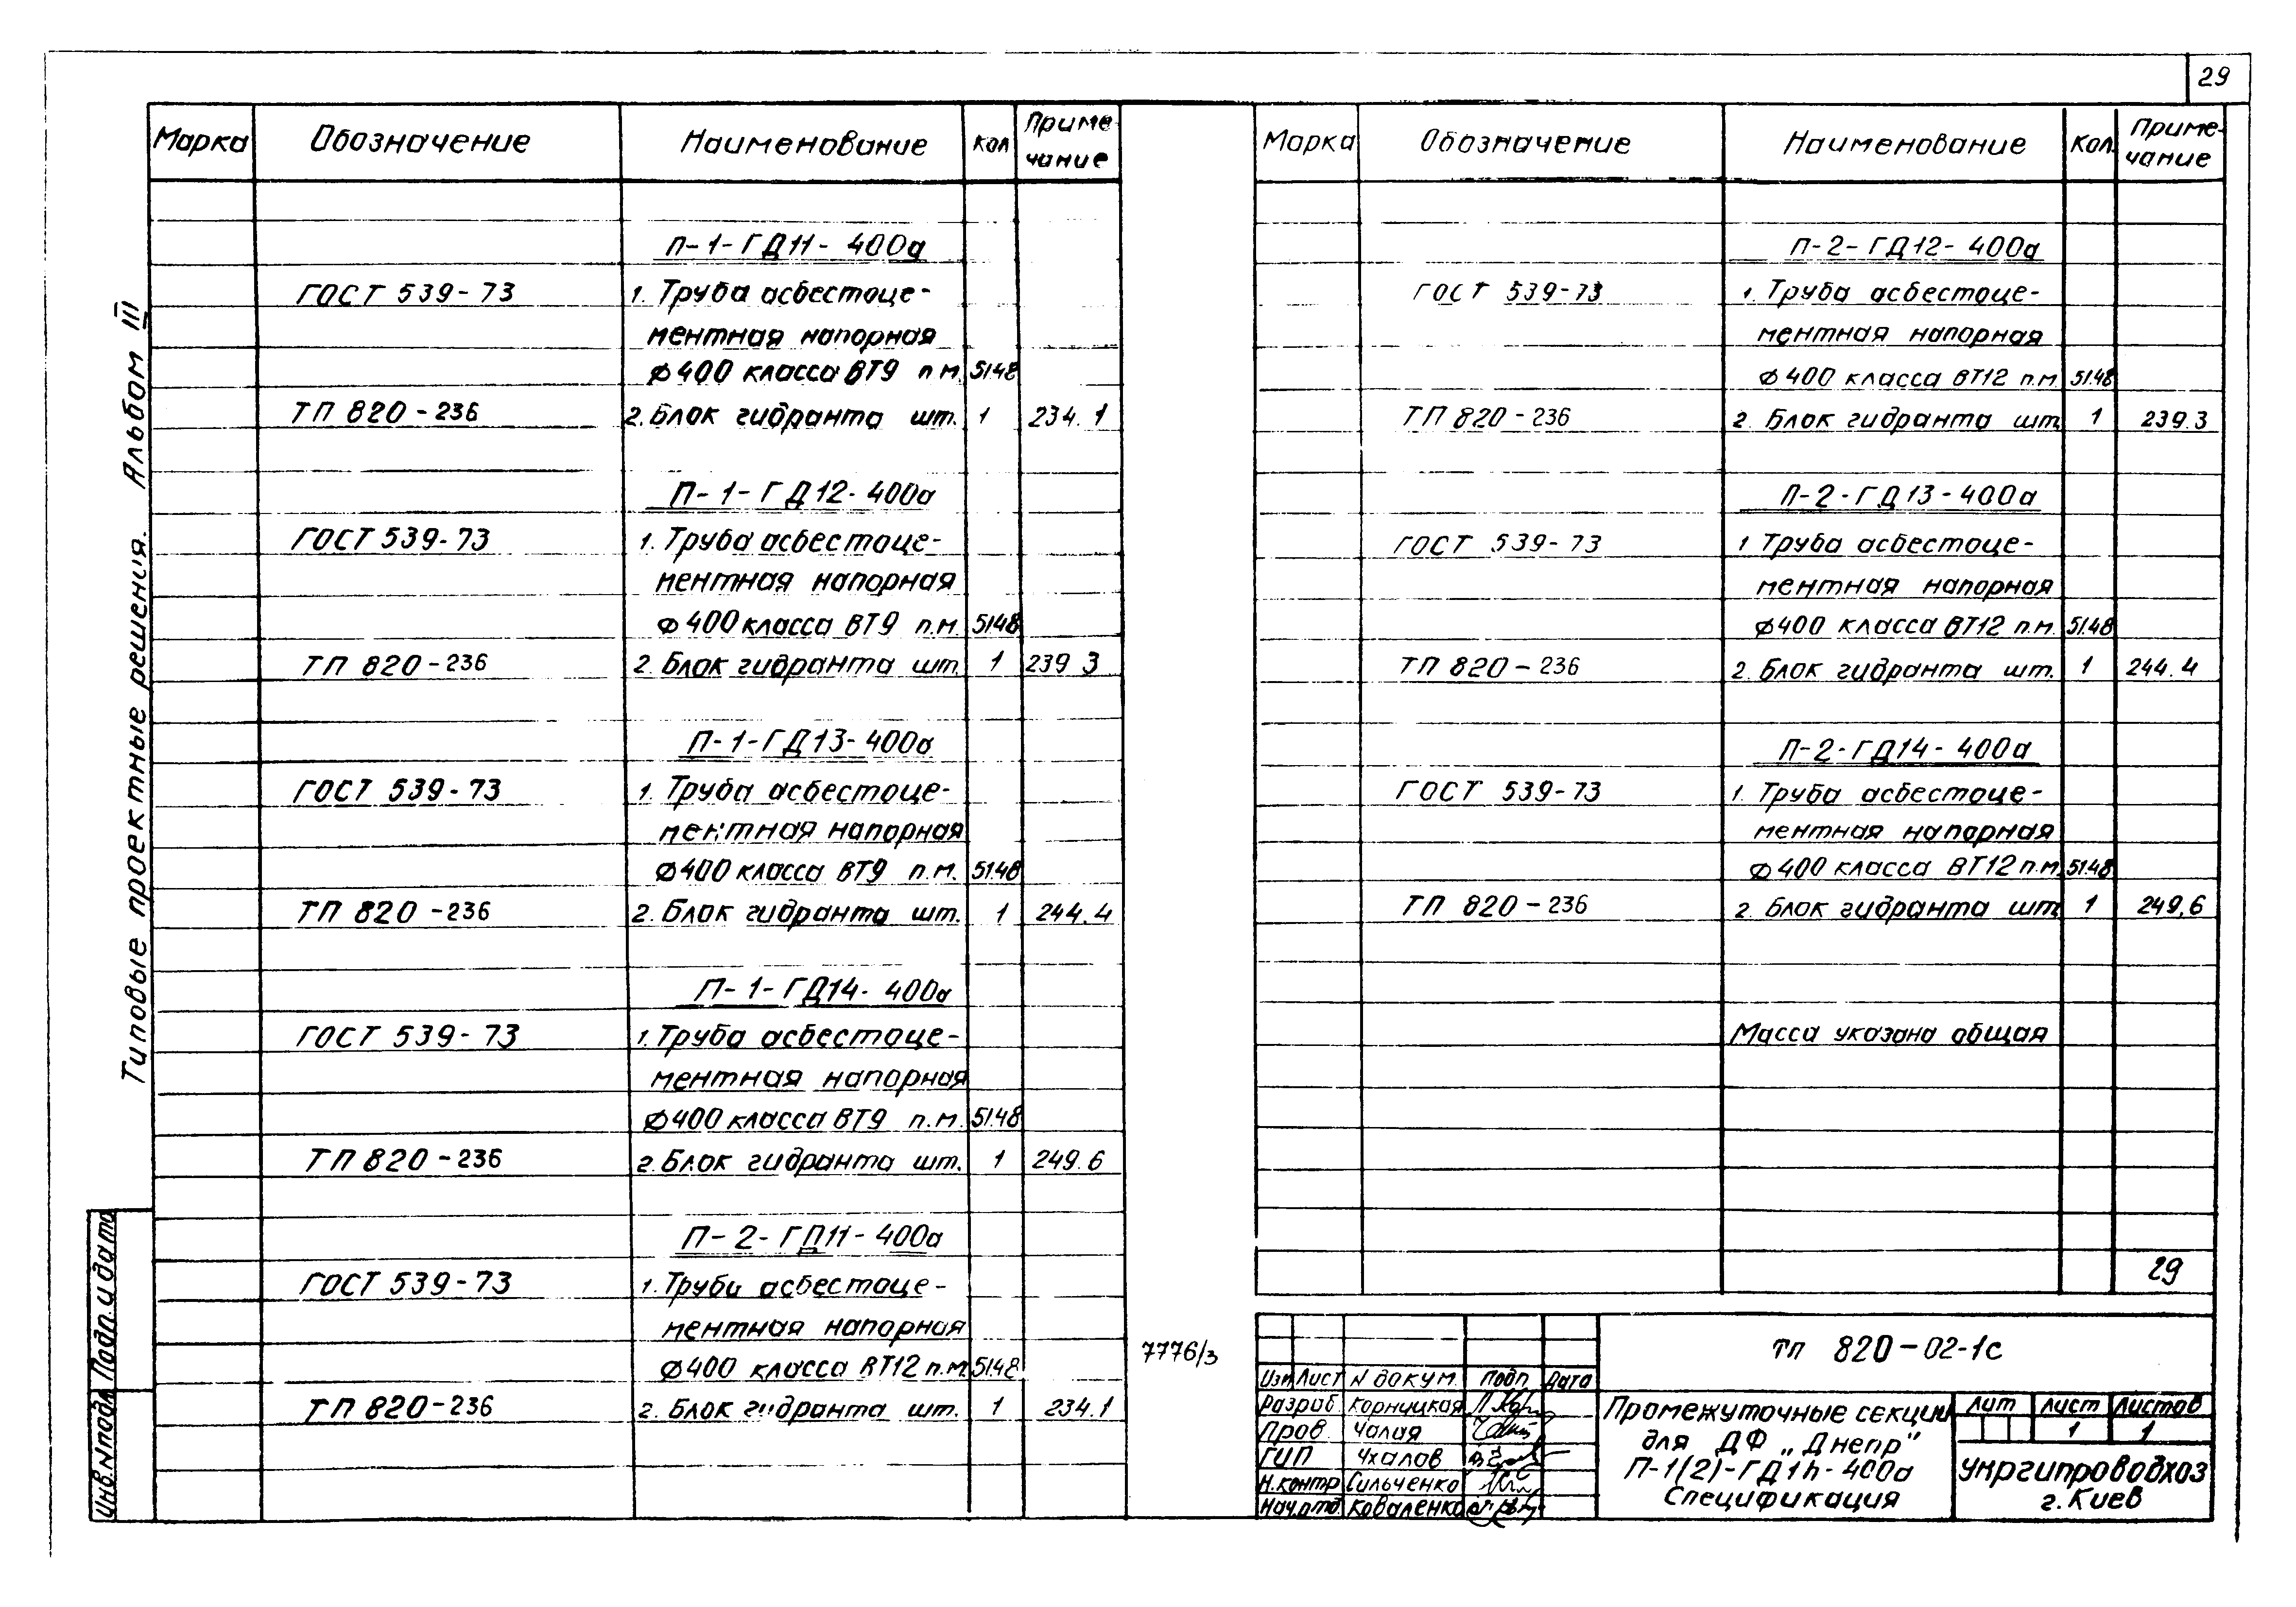 29
Марка Обозначение Наименование Кол Приме-
чание
П-1-ГД11-400а
ГОСТ 539-73 1. Труба асбестоце-
ментная напорная
ф400 класса ВТ9 п.м. 51.48
ТП 820-236 2. Блок гидранта шт. 1 234.1
П-1-ГД12-400а
ГОСТ 539-73 1. Труба асбестоце-
ментная напорная
ф400 класса ВТ9 п.м. 51.48
ТП 820-236 2. Блок гидранта шт. 1 239.3
П-1-ГД13-400а
ГОСТ 539-73 1. Труба асбестоце-
ментная напорная
ф400 класса ВТ9 п.м. 51.48
ТП 820-236 2. Блок гидранта шт. 1 244.4
П-1-ГД14-400а
ГОСТ 539-73 1. Труба асбестоце-
ментная напорная
ф400 класса ВТ9 п.м. 51.48
ТП 820-236 2. Блок гидранта шт. 1 249.6
П-2-ГД11-400а
ГОСТ 539-73 1. Труба асбестоце-
ментная напорная
ф400 класса ВТ12 п.м. 51.48
ТП 820-236 2. Блок гидранта шт. 1 234.1
Типовые проектные решения. Альбом III
Инв.№подл Подп. и дата
7776/3
Марка Обозначение Наименование Кол. Приме-
чание
П-2-ГД12-400а
ГОСТ 539-73 1. Труба асбестоце-
ментная напорная
ф400 класса ВТ12 п.м. 51.48
ТП 820-236 2. Блок гидранта шт. 1 239.3
П-2-ГД13-400а
ГОСТ 539-73 1 Труба асбестоце-
ментная напорная
ф400 класса ВТ12 п.м. 51.48
ТП 820-236 2. Блок гидранта шт. 1 244.4
П-2-ГД14-400а
ГОСТ 539-73 1. Труба асбестоце-
ментная напорная
ф400 класса ВТ12 п.м. 51.48
ТП 820-236 2. Блок гидранта шт. 1 249,6
Масса указана общая
29
ТП 820-02-1с
Изм Лист N докум. Подп Дата
Разраб Корницкая
Пров. Чалая
ГИП Чхалов
Н.контр Сильченко
Нач.отд Коваленко
Промежуточные секции
для ДФ „Днепр"
П-1(2)-ГД1n-400а
Спецификация
Лит Лист Листов
1 1
Укргипроводхоз
г. Киев